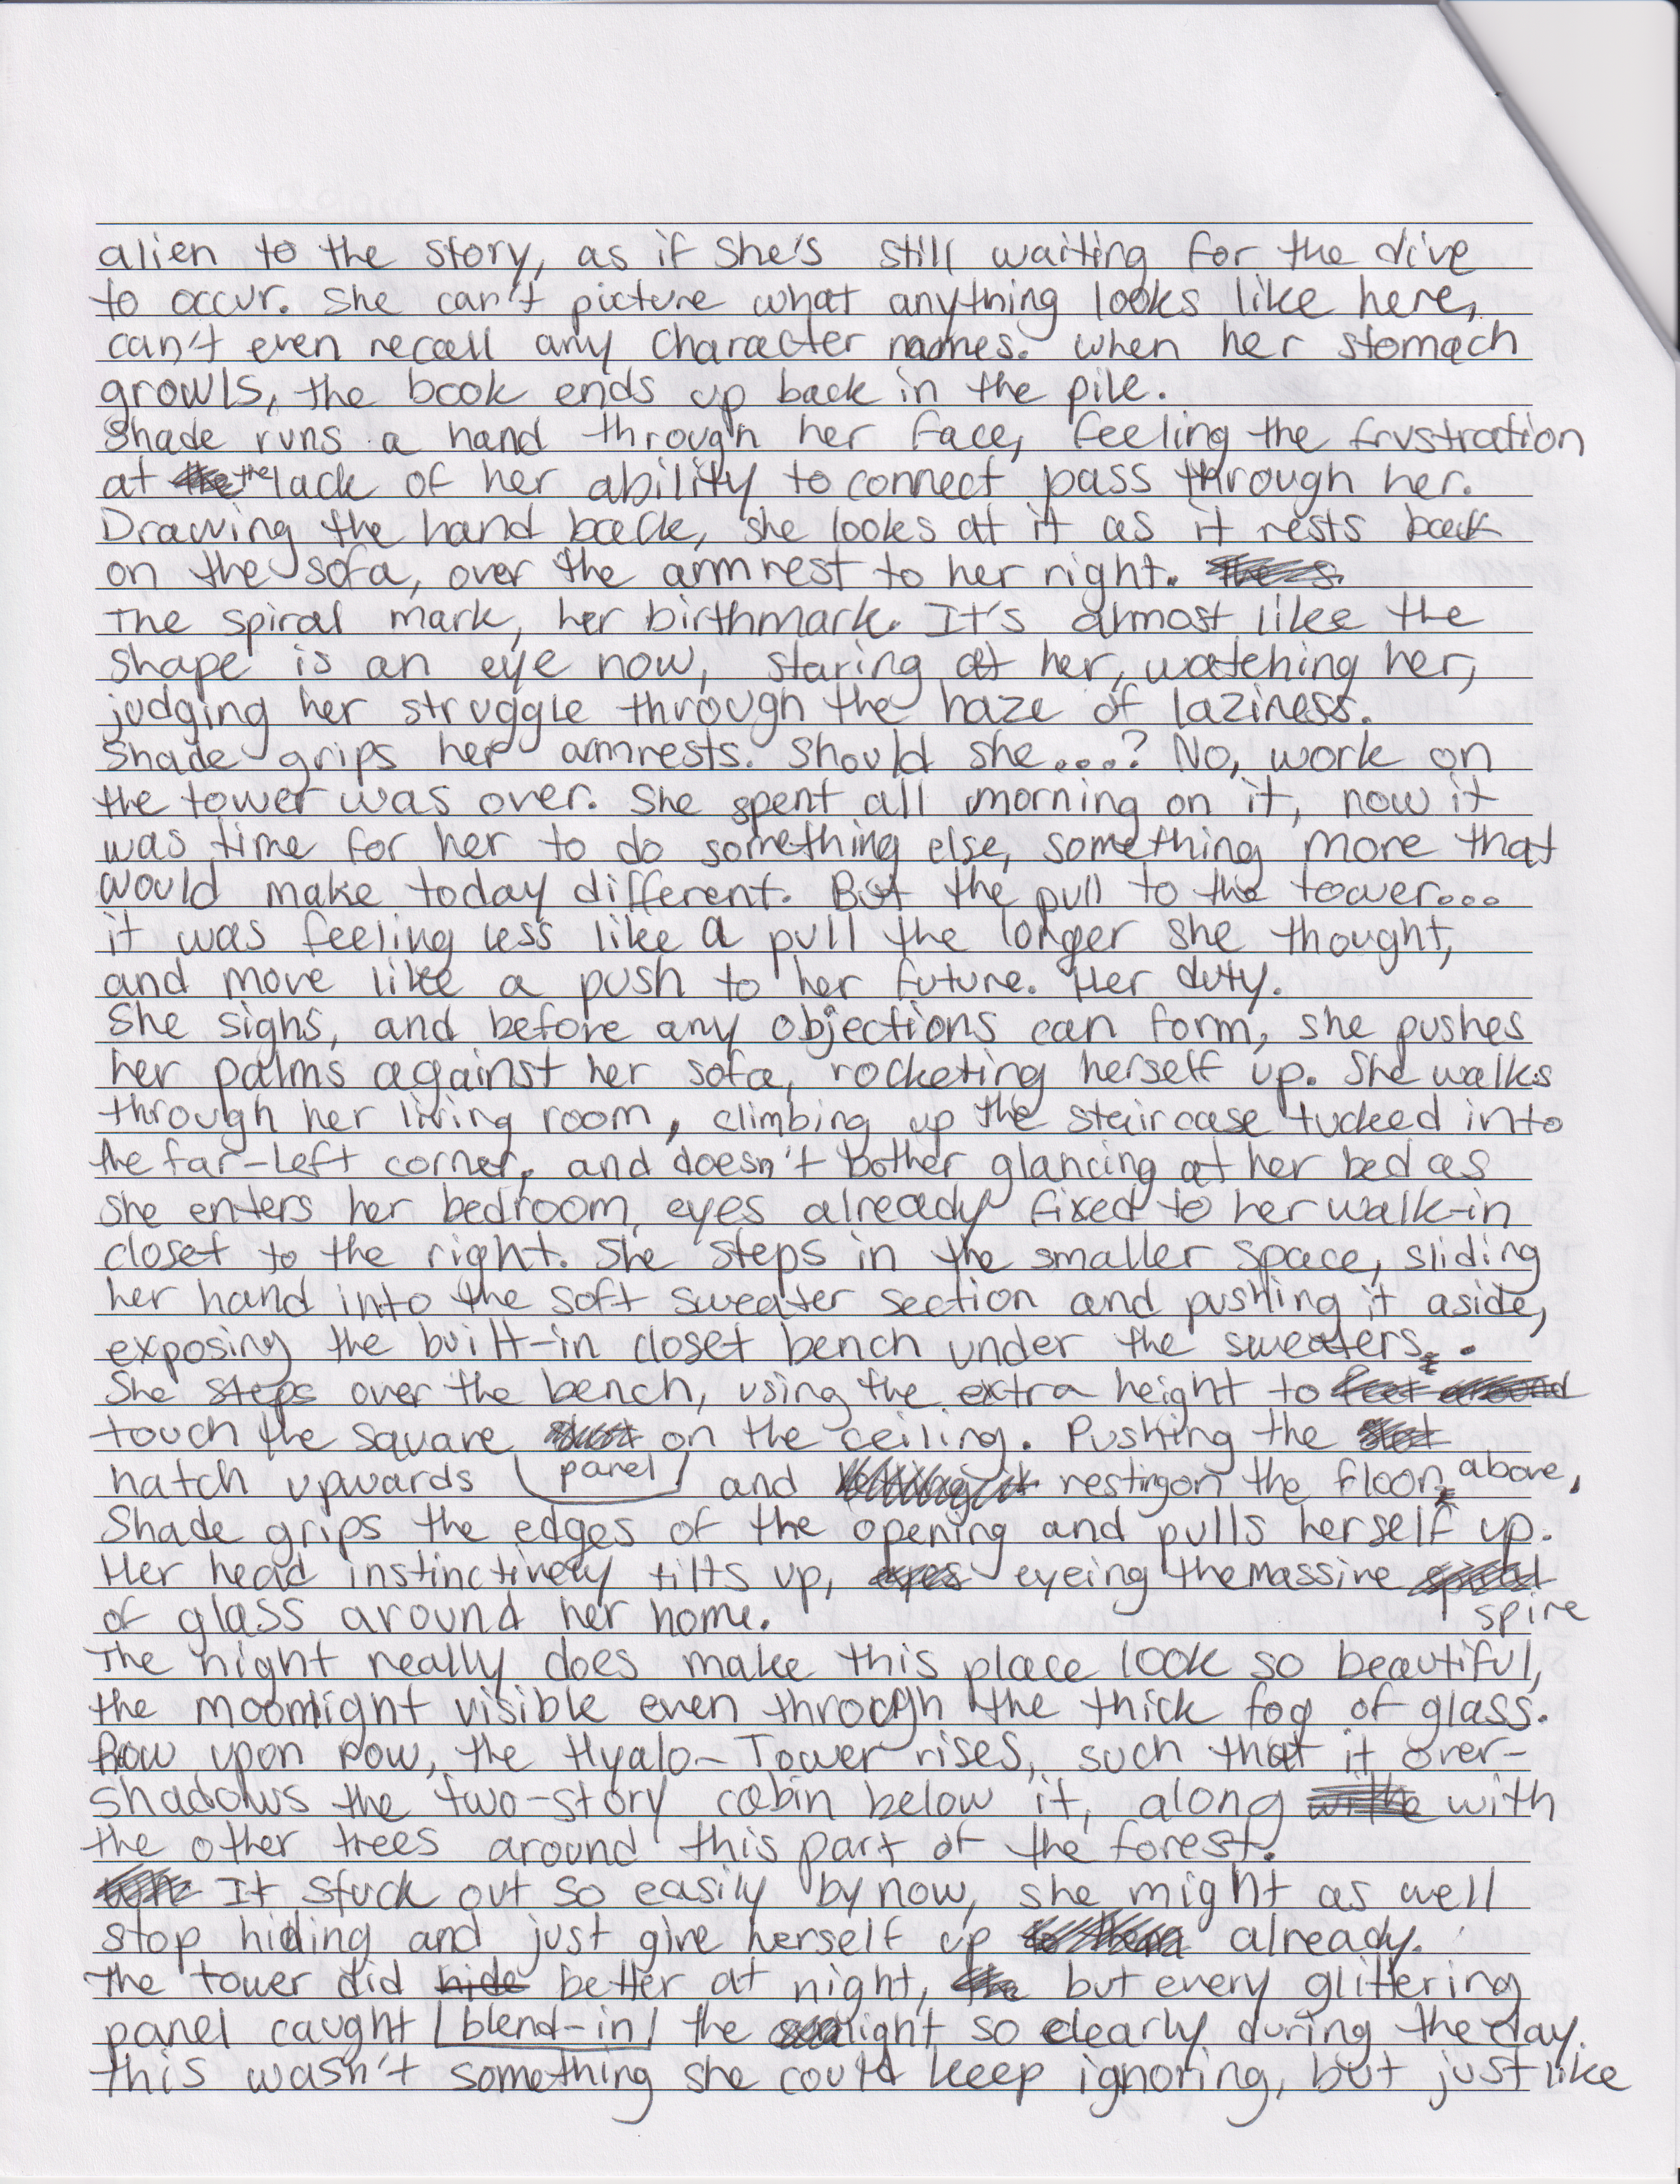 alien to the story, as if she's still waiting for the dive
to occur. She can't picture what anything looks like here,
can't even recall any character names. When her stomach
growls, the book ends up back in the pile.
Shade runs a hand through her face, feeling the frustration
at the the lack of her ability to connect pass through her.
Drawing the hand back, she looks at it as it rests back
on the sofa, over the armrest to her right.
The spiral mark, her birthmark. It's almost like the
shape is an eye now, staring at her, watching her,
judging her struggle through the haze of laziness.
Shade grips her armrests. Should she....? No, work on
the tower was over. She spent all morning on it, now it
was time for her to do something else, something more that
would make today different. But the pull to the tower...
it was feeling less like a pull the longer she thought,
and more like a push to her future. Her duty.
She sighs, and before any objections can form, she pushes
her palms against her sofa, rocketing herself up. She walks
through her living room, climbing up the staircase tucked into
the far-left corner, and doesn't bother glancing at her bed as
she enters her bedroom, eyes already fixed to her walk-in
closet to the right. She steps in the smaller space, sliding
her hand into the soft sweater section and pushing it aside,
exposing the built-in closet bench under the sweaters.
She steps over the bench, using the extra height to feel around
touch the square on the ceiling. Pushing the
hatch upwards panel and letting it resting on the floor above,
Shade grips the edges of the opening and pulls herself up.
Her head instinctively tilts up, eyes eyeing the massive
of glass around her home. spire
The night really does make this place look so beautiful,
the moonlight visible even through the thick fog of glass.
Row upon row, the Hyalo-Tower rises, such that it over-
shadows the two-story cabin below it, along with
the other trees around this part of the forest.
It stuck out so easily by now, she might as well
stop hiding and just give herself up to them already.
The tower did hide better at night, the but every glittering
panel caught blend-in the light so clearly during the day.
This wasn't something she could keep ignoring, but just like